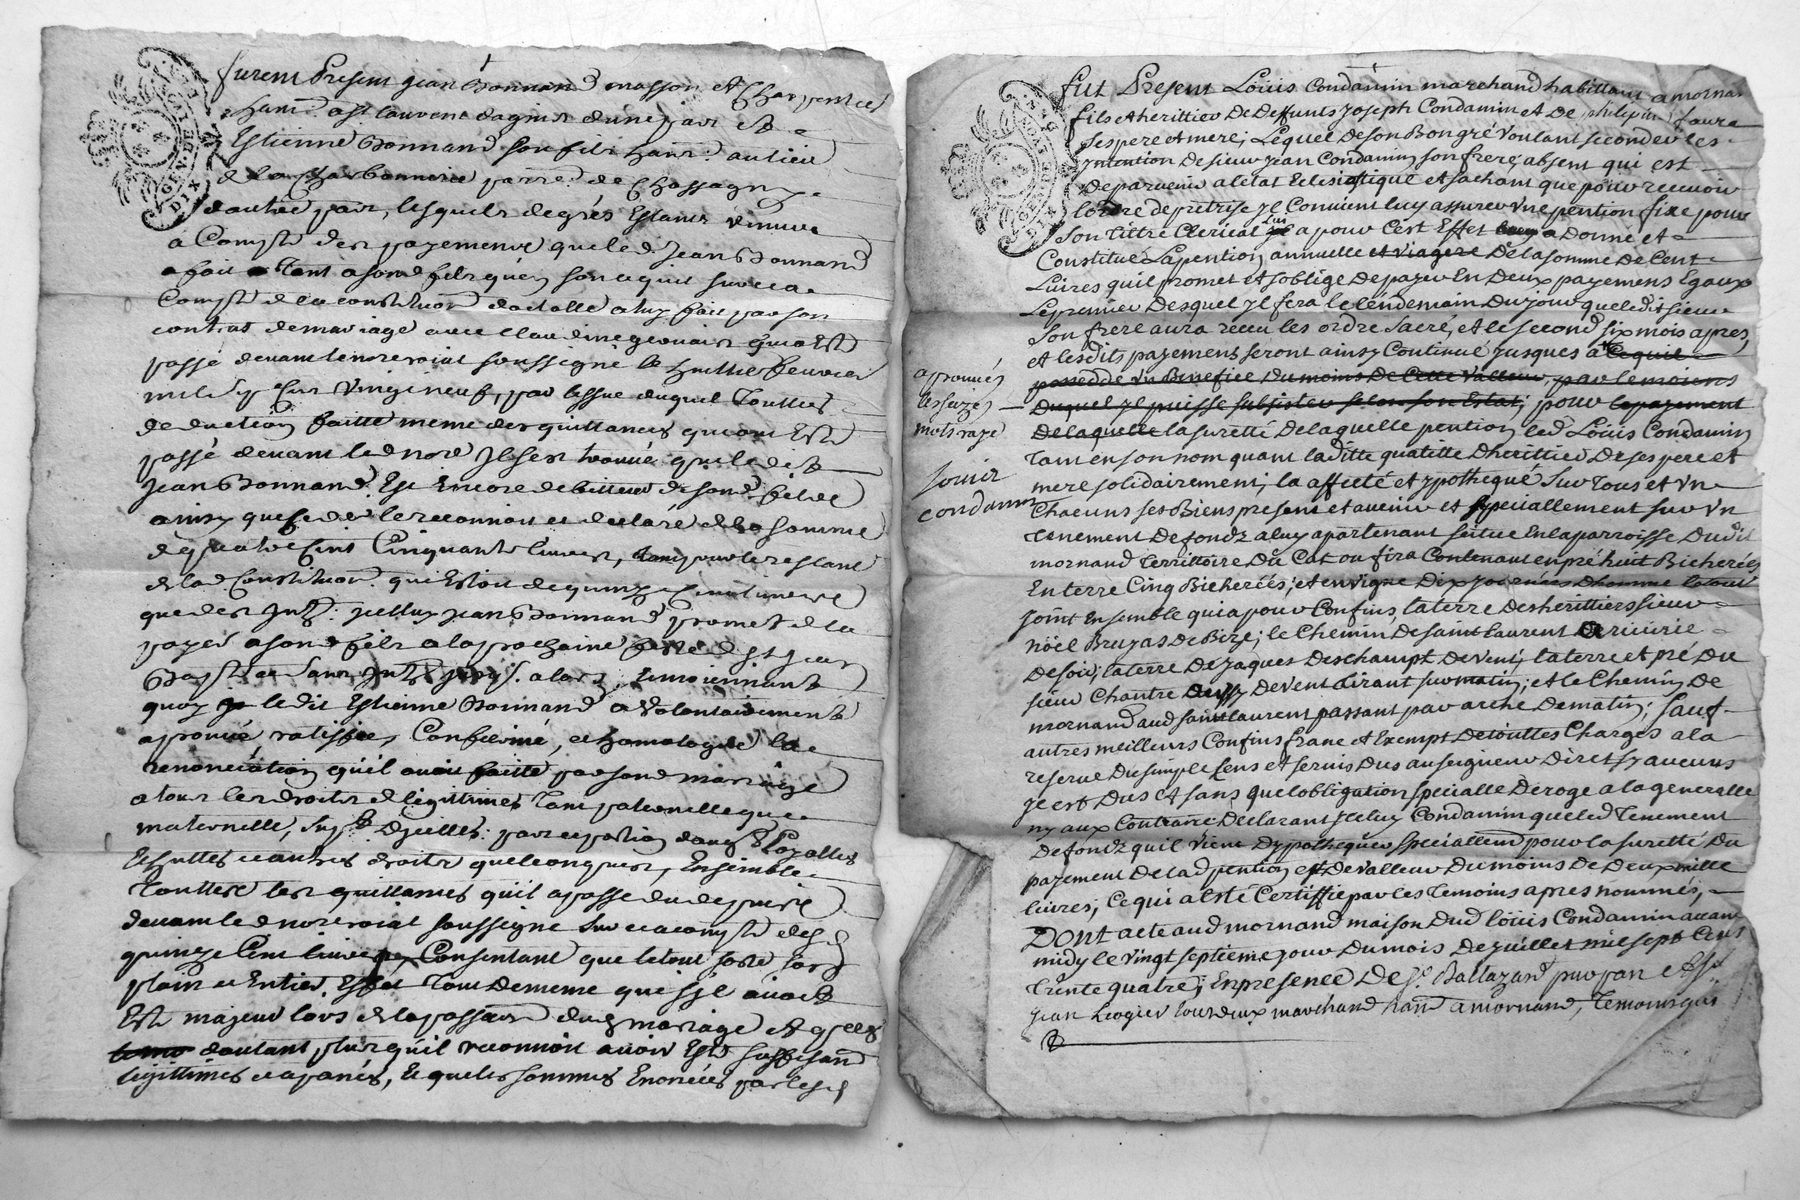 furent Present Jean Bonnand masson et Charpentier
Estienne Bonnand son fils habit. au lieu
de la Charbonniere parre. de Chassagny
d'autre part, lesquels de gres Estants venus
a Compte des payements que led. Jean Bonnand
a fait tant a sond. fils qu'en son acquit sur et a
Compte de la constitution dotalle a luy faite par son
contrat de mariage avec Claudine
passé devant le nore. roial soussigné le huitie fevrier
mil sept Cent vingt neuf, par lissue duquel Touttes
deduction faitte meme des quittances qui ont Esté
passé devant led. nore. Il s'est trouvé que led.
Jean Bonnand Est Encore debitteur de sond. fils
ainsy que se de le reconnoit et declare de la somme
de quatre Cent Cinquante livres, tant pour le restant
de lad. Constitution qui Estoit de quinze Cent livres
que des Intts. Icelluy Jean Bonnand promet de la
payer a sond. fils a la prochaine feste de st. Jean
Baptiste sans Intts. alors, temoiennant
quoy ledit Estienne Bonnand a volontairement
aprouvé ratiffié, Confirmé, et homologué la
renonciation qu'il avoit faitte par sond. mariage
a tous les droits de legittimes Tant paternelle que
maternelle, supt. d'icelles, part et portion d'augt. Loyalles
Echuttes et autres droits quelconques, Ensemble
Touttes les quittances qu'il a passé du depuis
devant led. nore. roial soussigné sur et a compte desd.
quinze Cent livres, Consentant que le tout sorte son
plain et Entier Effet Tout De meme que s'il avoit
Esté majeur lors de la passation dud. mariage et
d'autant plus qu'il reconnoit avoir Esté suffisant
legittimes et apanés, lesquelles sommes Enoncées par les
fut Present Loüis Condamin marchand habittant a mornan
fils et herittier de Deffunts Joseph Condamin et De philipine faura
ses pere et mere; Lequel de son Bon gré voulant seconder les
Intention de sieur Jean Condamin son frere absent qui est
De parvenir a l'etat Eclesiastique et sachant que pour recevoir
l'ordre de pretrise Il Convient luy assurer vne pention fixe pour
Son Tittre Clerical Lui a pour C'est Effet Donné et
Constitué La pention annuelle et viagere De la somme De Cent
Livres qu'il promet et s'oblige De payer En Deux payemens Egaux
Le premier Desquel Il fera le lendemain Du jour que ledit sieur
Son frere aura receu les ordre Sacré, et le second six mois apres
et lesdits payement seront ainsy Continué Jusques a Ce qu'il
possedde vn Benefice Du moins De Cette valleur, par le moiens
Duquel Il puisse subsister selon son Estat; pour le payement
De laquelle la suretté De laquelle pention led. Loüis Condamin
Tant en son nom quant laditte qualitte D'herittier De ses pere et
mere solidairement, la affecté et ypothequé Sur Tous et vn
Chacuns ses Biens present et avenir et specialement sur vn
Tenement De fondz a luy apartenant scitué En la parroisse Dudit
mornand Territtoire Du Cat ou fira Contenant en pré huit Bicherées
En terre Cinq Bicherées, et en vigne Dix Journées D'homme le tout
Joint Ensemble qui a pour Confins, la terre Des herittiers sieur
Nöel Bruyas De Bize; le Chemin De saint Laurent a riverie
De soir; la terre De Jaques Deschampt De vent; la terre et pré Du
sieur Chantre De vent tirant sur matin; et le Chemin De
mornand aud. saint Laurent passant par arche De matin; sauf
autres meilleurs Confins franc et Exempt De touttes Charges a la
reserve Du simple Cens et servis Dus au seigneur Direct sy aucuns
Il est Dus et sans que l'obligation specialle Deroge a la generalle
ny aux Contraire Declarant Icelluy Condamin que led. Tenement
De fondz qu'il vient D'ypothequer speciallem. pour la suretté Du
payement De lad. pention est De valleur Du moins De Deux mille
livres; Ce qui a Esté Certiffié par les Temoins apres nommés;
DONT acte aud. mornand maison Dud. Loüis Condamin avant
midy le vingt septieme jour Du mois De juillet mil sept Cent
Trente quatre; En presence De Sr. Baltazard
Jean Tous deux marchand habt. a mornand, Temoins qui
aprouvés
les seize
mots rayé
Louis
condamin
GEN. DE LION
DIX